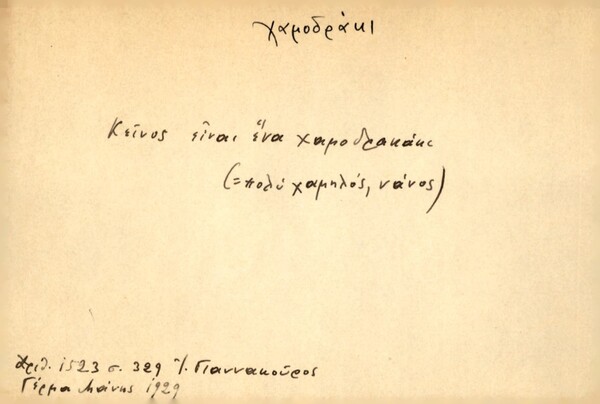 χαμοδράκι
Κεῖνος εἶναι ἕνα χαμοδρακάκι
(=πολύ χαμηλός, νάνος)
Ἀριθ. 1523 σ. 329 Γιαννακοῦρος
Γέρμα Μάνης 1929